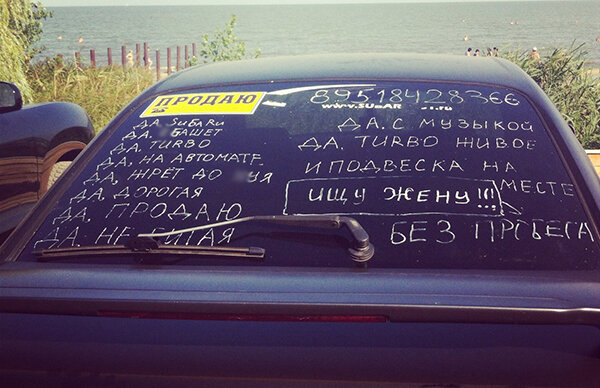 ПРОДАЮ
89518428366
www.SU AR .ru
ДА, SUBARU
ДА, БАШЕТ
ДА, TURBO
ДА, НА АВТОМАТЕ
ДА, ЖРЕТ ДО УЯ
ДА, ДОРОГАЯ
ДА, ПРОДАЮ
ДА, НЕ БИТАЯ
ДА, С МУЗЫКОЙ
ДА, TURBO ЖИВОЕ
И ПОДВЕСКА НА
МЕСТЕ
ИЩУ ЖЕНУ!!!
БЕЗ ПРОБЕГА